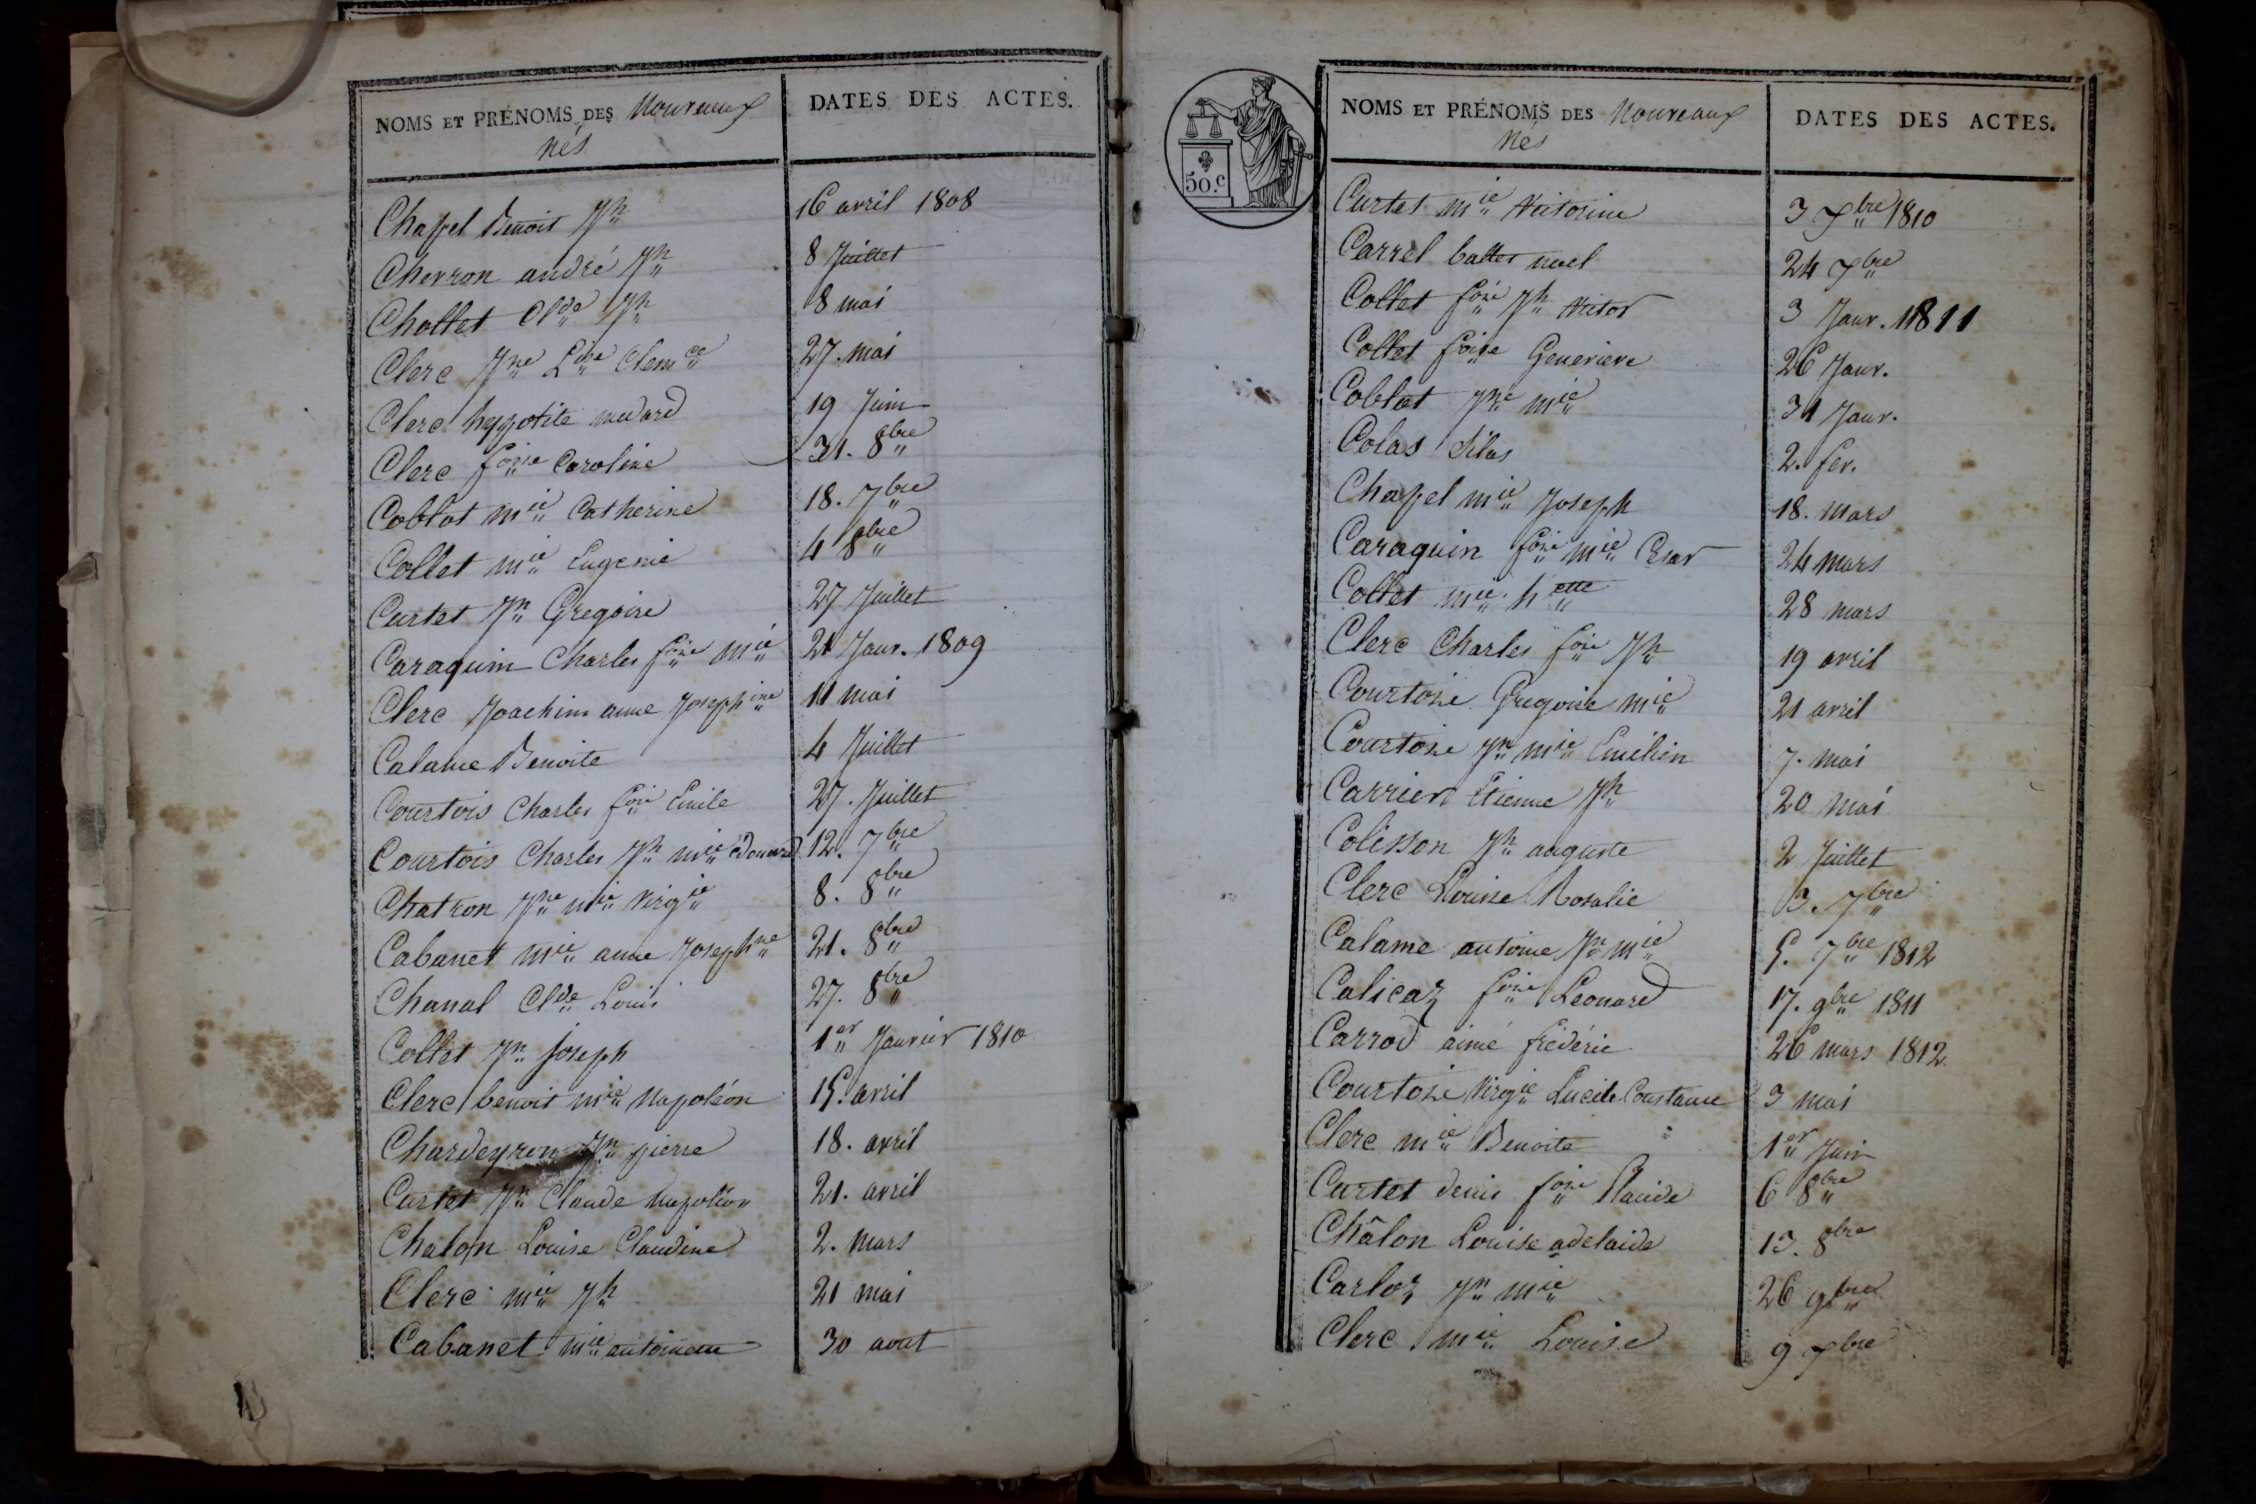 NOMS ET PRÉNOMS DES Nouveaux Nés
DATES DES ACTES.
Chapel Benoit Jh 16 avril 1808
Chevron andré Jh 8 Juillet
Chollet Clde Jh 8 mai
Clerc Jne Lse Clemce 27. mai
Clerc hyppolite medard 19 Juin
Clerc foise Caroline 31. 8bre
Coblat mie Catherine 18. 7bre
Collet mie Eugenie 4 8bre
Curtet Jn Gregoire 27 Juillet
Caraquin Charles foise mie 21 Janv. 1809
Clerc Joachim anne Josephine 11 mai
Calame Benoite 4 Juillet
Courtois Charles fois Emile 27. Juillet
Courtois Charles Jh mie Edouard 12. 7bre
Chatron Jne mie Virgie 8. 8bre
Cabanet mie anne Josephne 21. 8bre
Chanal Clde Louis 27. 8bre
Collet Jn Joseph 1er Janvier 1810
Clerc benoit mie Napoléon 15. avril
Chardeyron Jn pierre 18. avril
Curtet Jn Claude Napoléon 21. avril
Chalon Louise Claudine 2. mars
Clerc mie Jh 21 mai
Cabanet mie 30 aout
50.c
NOMS ET PRÉNOMS DES Nouveaux Nés
DATES DES ACTES.
Curtet mie Victorine 3 Xbre 1810
Carrel battes noel 24 Xbre
Collet fois Jh Victor 3 Janv. 1811
Collet foise Genevieve 26 Janv.
Coblat Jne mie 31 Janv.
Colas Silas 2. fev.
Chapel mie Joseph 18. mars
Caraquin fois mie Cesar 24 mars
Collet mie hette 28 mars
Clerc Charles fois Jh 19 avril
Courtois Gregoire mie 21 avril
Courtois Jn mie Emilien 7. mai
Carrier Etienne Jh 20 mai
Colisson Jh auguste 2 Juillet
Clerc Louise Rosalie 3. 7bre
Calame antoine Jn mie 5. 7bre 1812
Calicaz fois Leonard 17. 9bre 1811
Carrod aimé frédéric 26 mars 1812
Courtois Virgie Lucile Constance 3 mai
Clerc mie Benoite 1er Juin
Curtet denis fois Placide 6 8bre
Châlon Louise adelaide 13. 8bre
Carloz Jn mie 26 9bre
Clerc mie Louise 9 Xbre